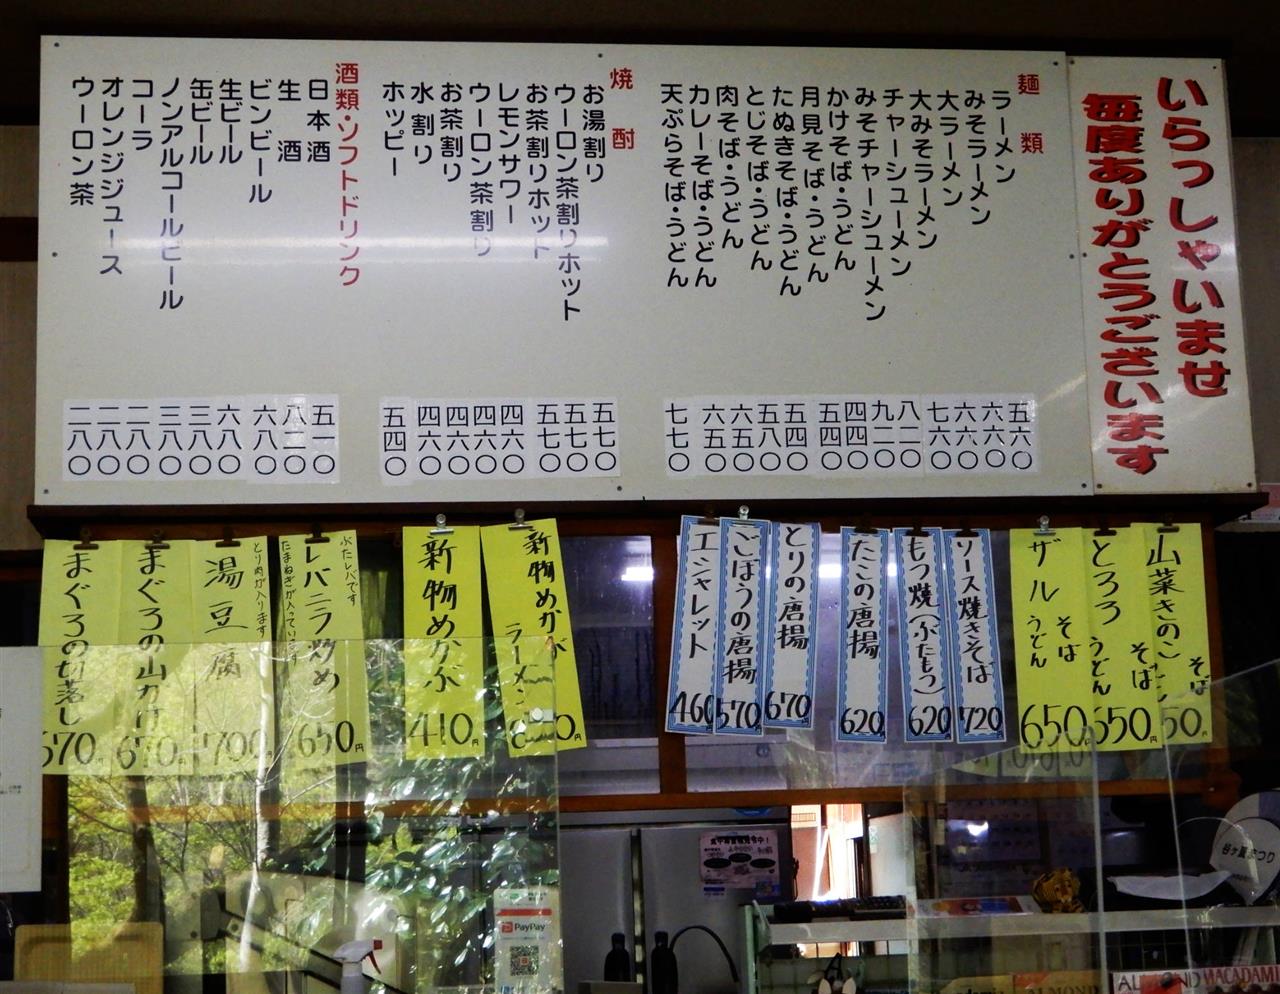 いらっしゃいませ
毎度ありがとうございます
麺類
ラーメン 五六〇
みそラーメン 六六〇
大ラーメン 六六〇
大みそラーメン 七六〇
チャーシューメン 八一〇
みそチャーシューメン 九一〇
かけそば・うどん 四四〇
月見そば・うどん 五四〇
たぬきそば・うどん 五四〇
とじそば・うどん 五八〇
肉そば・うどん 六五〇
カレーそば・うどん 六五〇
天ぷらそば・うどん 七七〇
焼酎
お湯割り 五七〇
ウーロン茶割りホット 五七〇
お茶割りホット 五七〇
レモンサワー 四六〇
ウーロン茶割り 四六〇
お茶割り 四六〇
水割り 四六〇
ホッピー 五四〇
酒類・ソフトドリンク
日本酒 五一〇
生酒 八二〇
ビンビール 六八〇
生ビール 六八〇
缶ビール 三八〇
ノンアルコールビール 三八〇
コーラ 二八〇
オレンジジュース 二八〇
ウーロン茶 二八〇
山菜きのこ そば
50円
とろろ そば うどん
650円
ザル そば うどん
650円
ソース焼きそば
720円
もつ焼(ぶたもつ)
620円
たこの唐揚
620円
とりの唐揚
670円
ごぼうの唐揚
570円
エシャレット
460
新物めかぶ
ラーメン
新物めかぶ
410円
レバニラ炒め
ぶたレバです
たまねぎが入っています
650円
湯豆腐
とり肉が入ります
700円
まぐろの山かけ
670円
まぐろの切落し
670円
PayPay
谷ヶ
まつり
ALMOND
ALMOND
MACADAMI